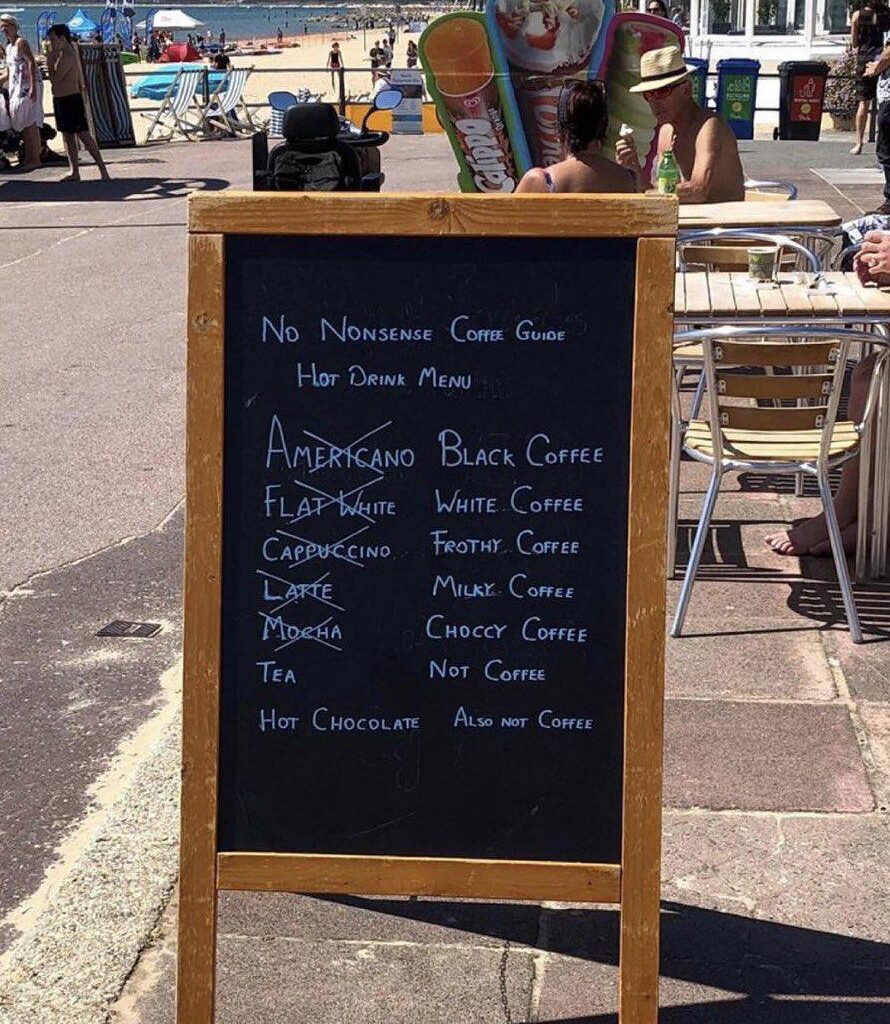 Calippo
No Nonsense Coffee Guide
Hot Drink Menu
Americano Black Coffee
Flat White White Coffee
Cappuccino Frothy Coffee
Latte Milky Coffee
Mocha Choccy Coffee
Tea Not Coffee
Hot Chocolate Also not Coffee